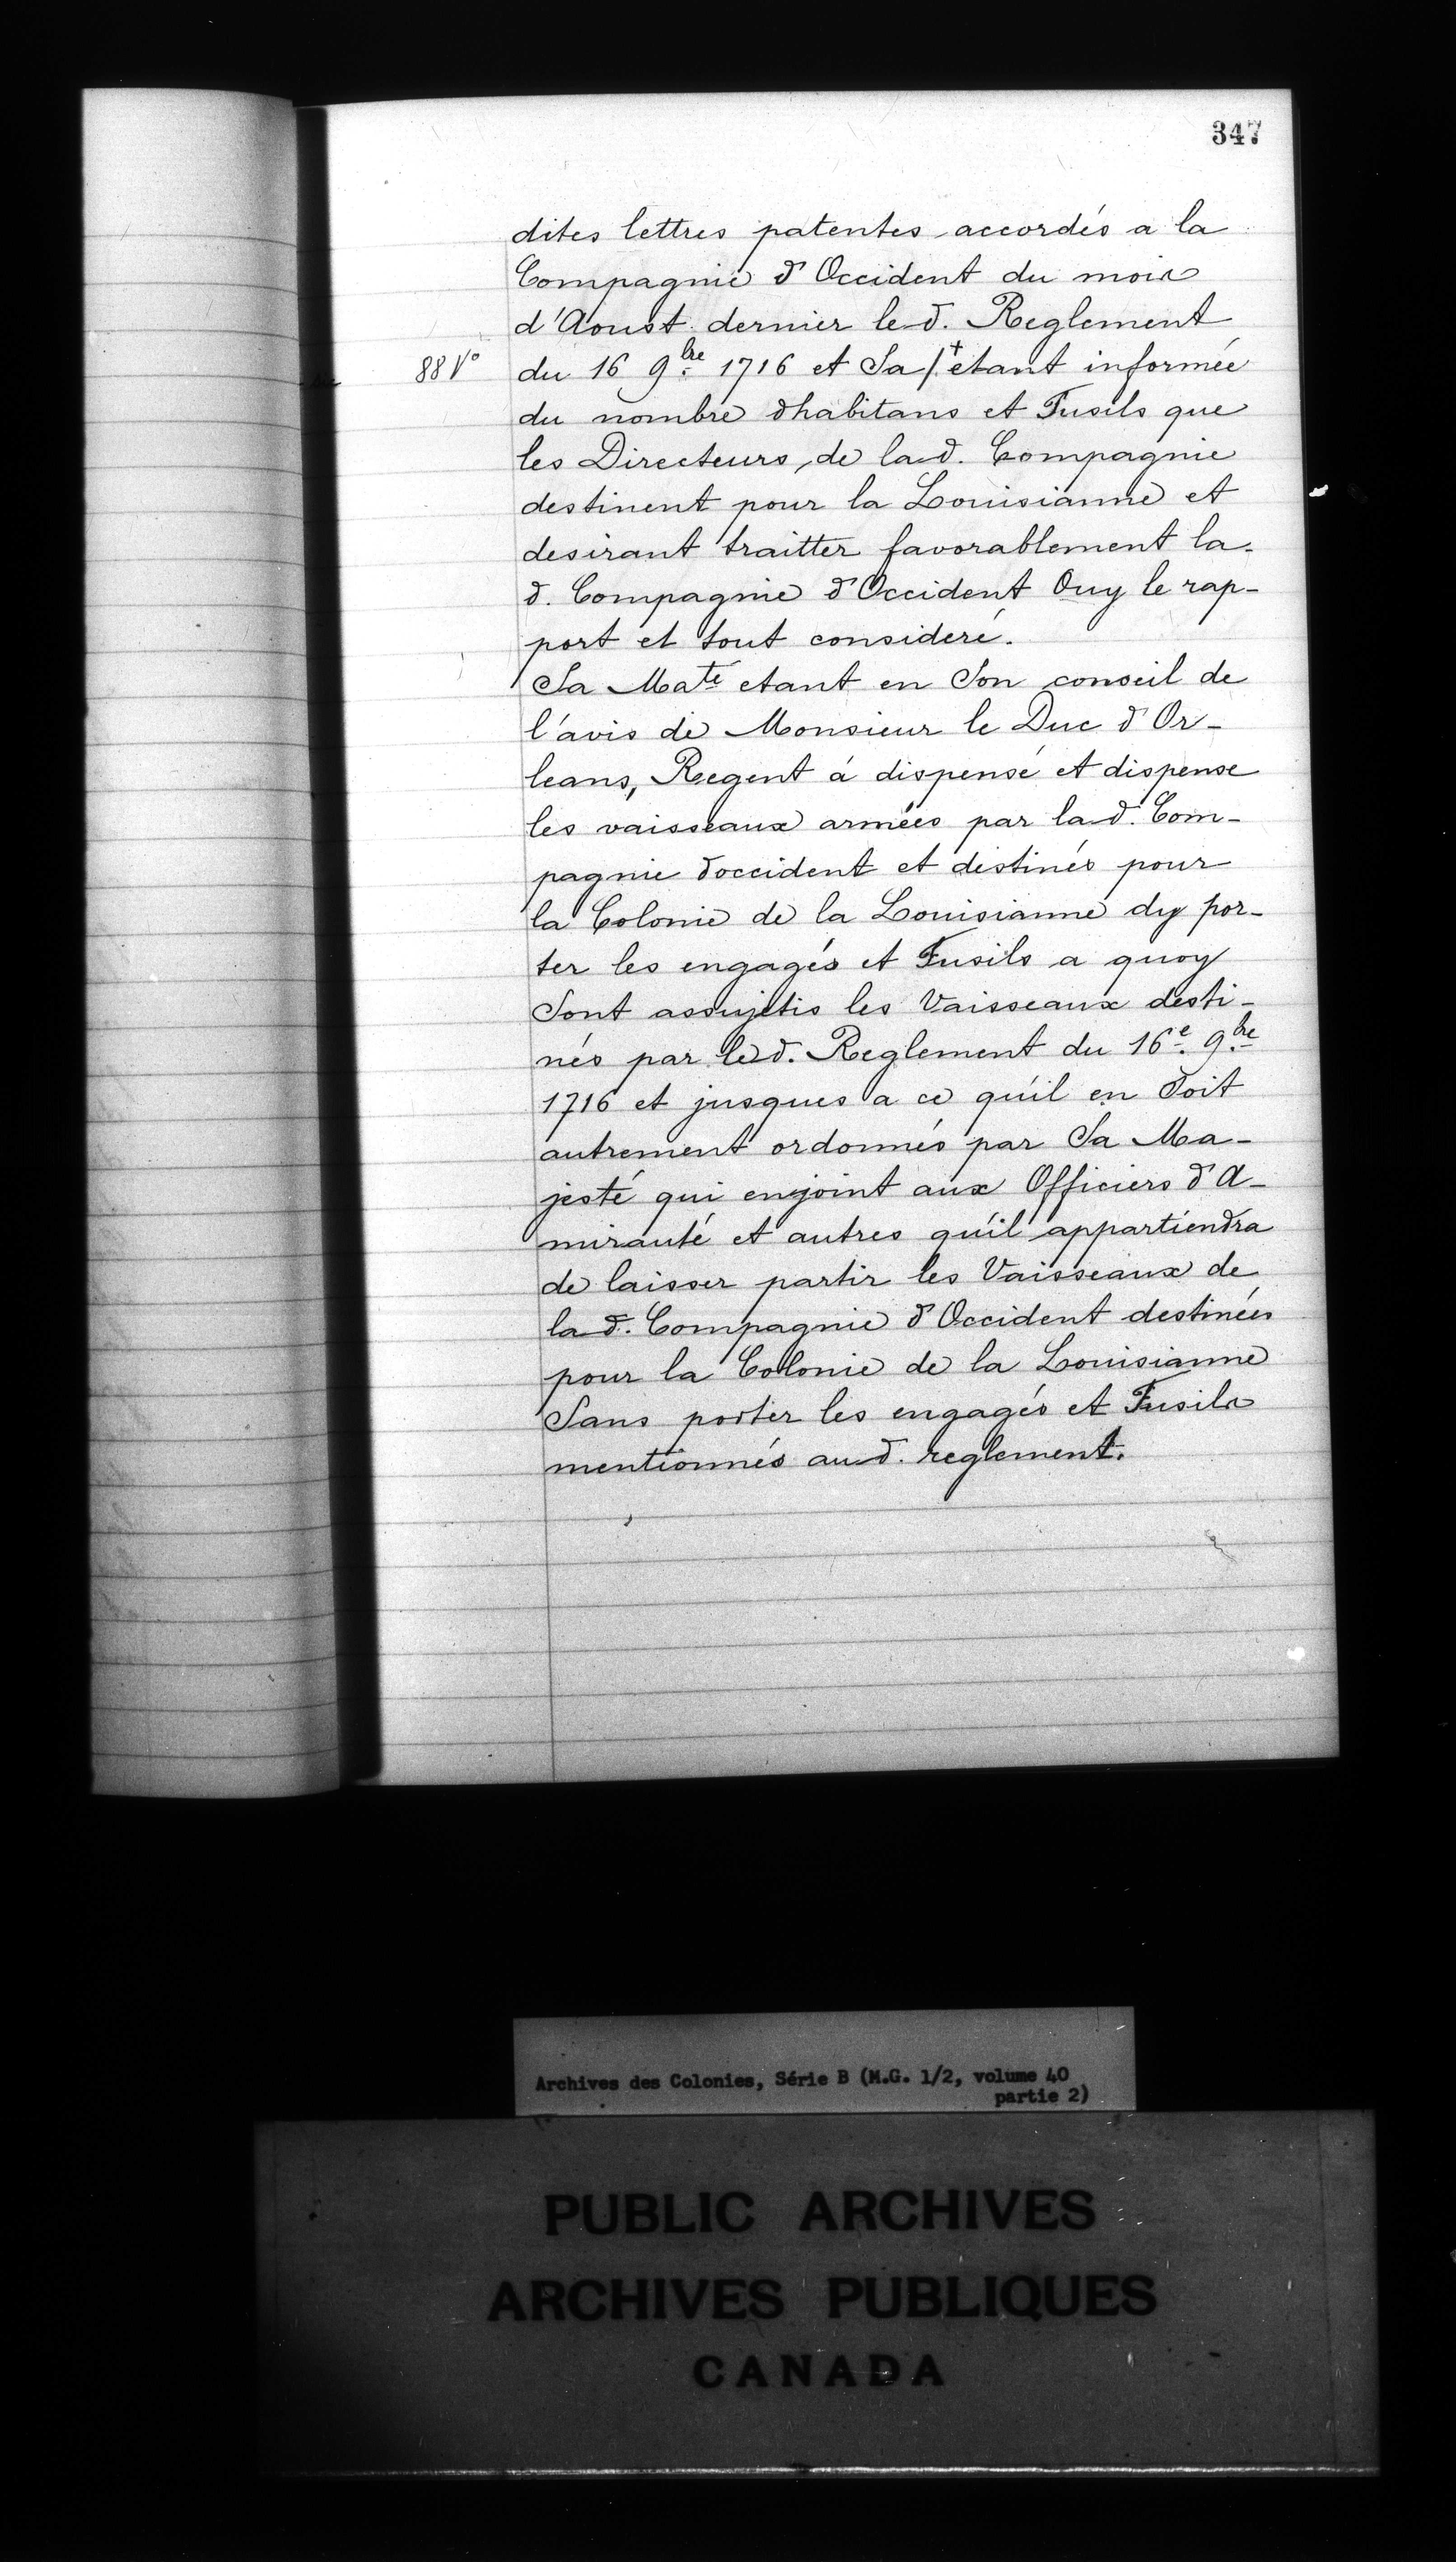 347
dites lettres patentes accordés a la
Compagnie d'Occident du mois
d'Aoust dernier le d. Reglement
88 Vº
du 16 9bre 1716 et Sa /+ etant informée
du nombre dhabitans et Fusils que
les Directeurs, de la d. Compagnie
destinent pour la Louisianne et
desirant traitter favorablement la
d. Compagnie d'Occident Ouy le rap-
port et tout consideré.
Sa Maté etant en Son conseil de
l'avis de Monsieur le Duc d'Or-
leans, Regent á dispensé et dispense
les vaisseaux armées par la d. Com-
pagnie doccident et destinés pour
la Colonie de la Louisianne dy por-
ter les engagés et Fusils a quoy
Sont assujetis les Vaisseaux desti-
nés par le d. Reglement du 16e 9bre
1716 et jusques a ce qu'il en Soit
autrement ordonnés par Sa Ma-
jesté qui enjoint aux Officiers d'A-
mirauté et autres qu'il appartiendra
de laisser partir les Vaisseaux de
la d. Compagnie d'Occident destinées
pour la Colonie de la Louisianne
Sans porter les engagés et Fusils
mentionnés au d. reglement.
Archives des Colonies, Série B (M.G. 1/2, volume 40
partie 2)
PUBLIC ARCHIVES
ARCHIVES PUBLIQUES
CANADA